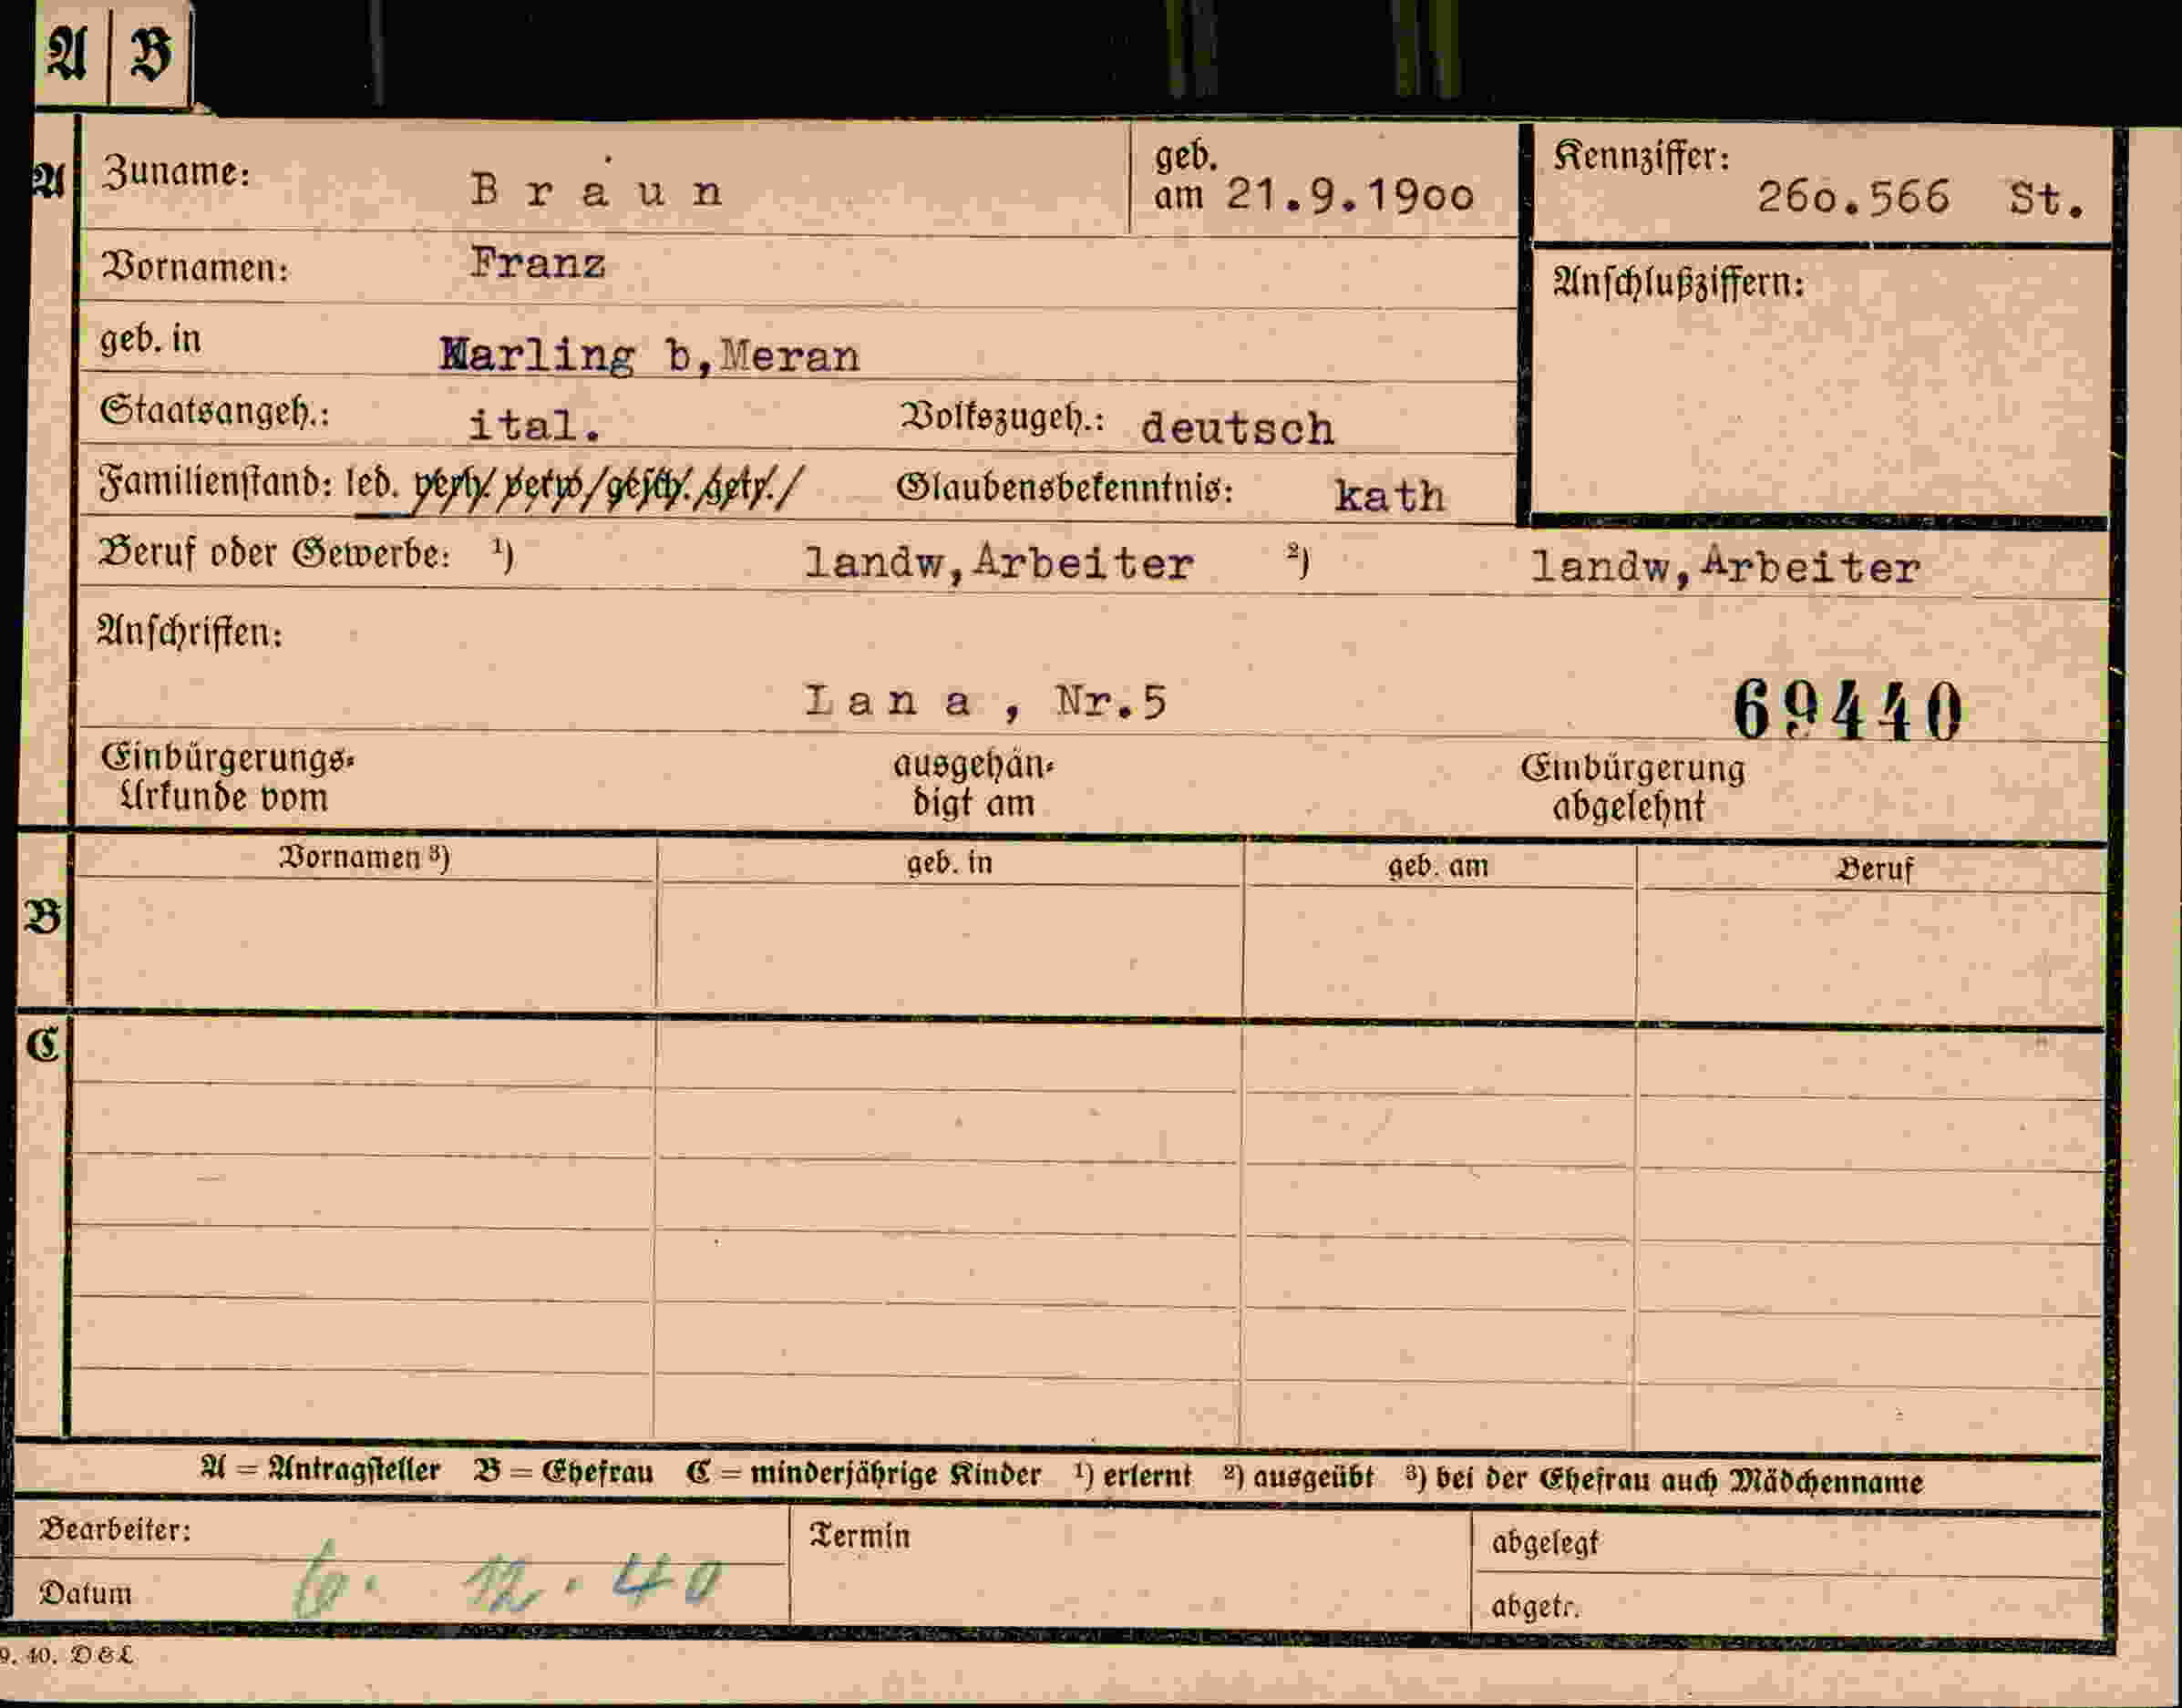 A B
A
Zuname: Braun geb. am 21.9.1900 Kennziffer: 260.566 St.
Vornamen: Franz Anschlußziffern:
geb. in Marling b,Meran
Staatsangeh.: ital. Volkszugeh.: deutsch
Familienstand: led. verh. verw. gesch. getr. Glaubensbekenntnis: kath
Beruf oder Gewerbe: 1) landw,Arbeiter 2) landw,Arbeiter
Anschriften:
Lana, Nr.5 69440
Einbürgerungs- ausgehän- Einbürgerung
Urkunde vom digt am abgelehnt
Vornamen 3) geb. in geb. am Beruf
B
C
A = Antragsteller B = Ehefrau C = minderjährige Kinder 1) erlernt 2) ausgeübt 3) bei der Ehefrau auch Mädchenname
Bearbeiter: Termin abgelegt
Datum 6. 12. 40 abgetr.
9. 40. D & L